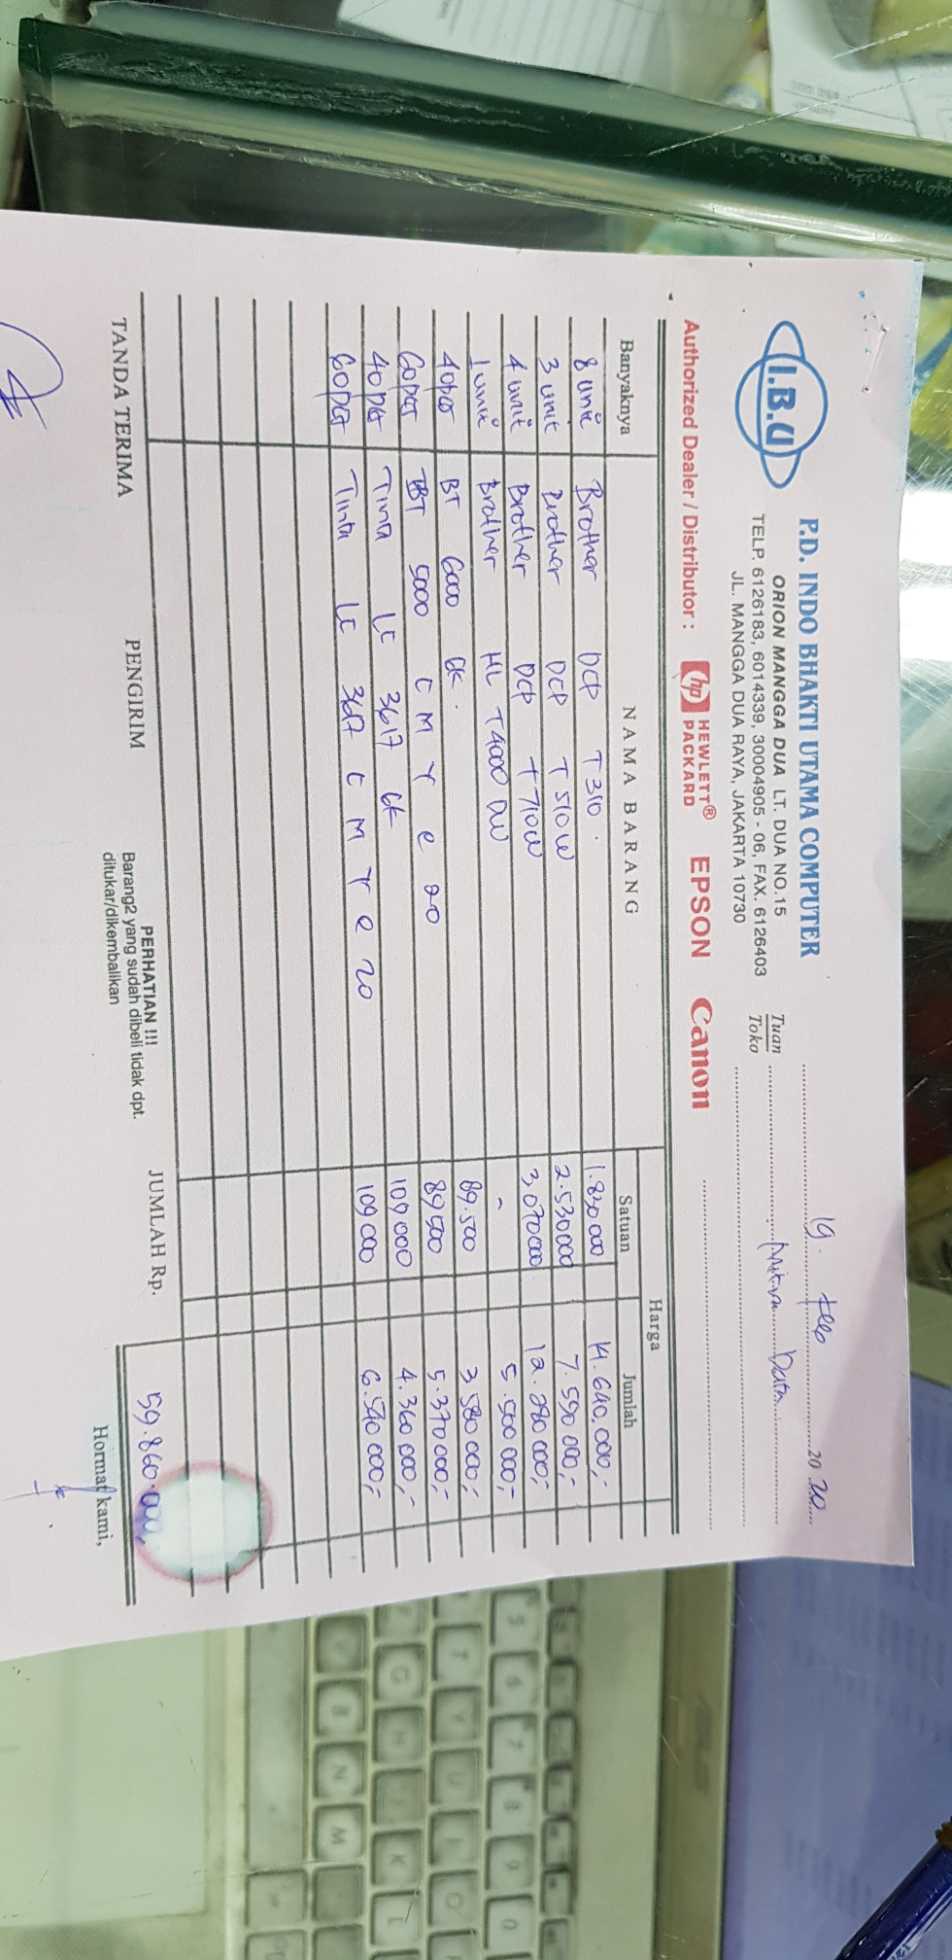 I.B.U
P.D. INDO BHAKTI UTAMA COMPUTER
ORION MANGGA DUA LT. DUA NO.15
TELP. 6126183, 6014339, 30004905 - 06, FAX. 6126403
JL. MANGGA DUA RAYA, JAKARTA 10730
19 Feb 20 20
Tuan
Toko
Mitra Data
Authorized Dealer / Distributor : hp HEWLETT® PACKARD EPSON Canon
Banyaknya NAMA BARANG Harga
Satuan Jumlah
8 unit Brother DCP T310. 1.830000 14.640.000,-
3 unit Brother DCP T510W 2.530000 7.590.000,-
4 unit Brother DCP T710W 3.070000 12.280.000,-
1 unit Brother HL T4000 DW - 5.500.000,-
40 pct BT 6000 BK. 89.500 3.580.000,-
60 pct BT 5000 C M Y @ 20 89500 5.370.000,-
40 pct Tinta LC 3617 BK 109000 4.360.000,-
60 pct Tinta LC 3617 C M Y @ 20 109000 6.540.000,-
JUMLAH Rp. 59.860.000,
TANDA TERIMA PENGIRIM
PERHATIAN !!!
Barang2 yang sudah dibeli tidak dpt.
ditukar/dikembalikan
Hormat kami,